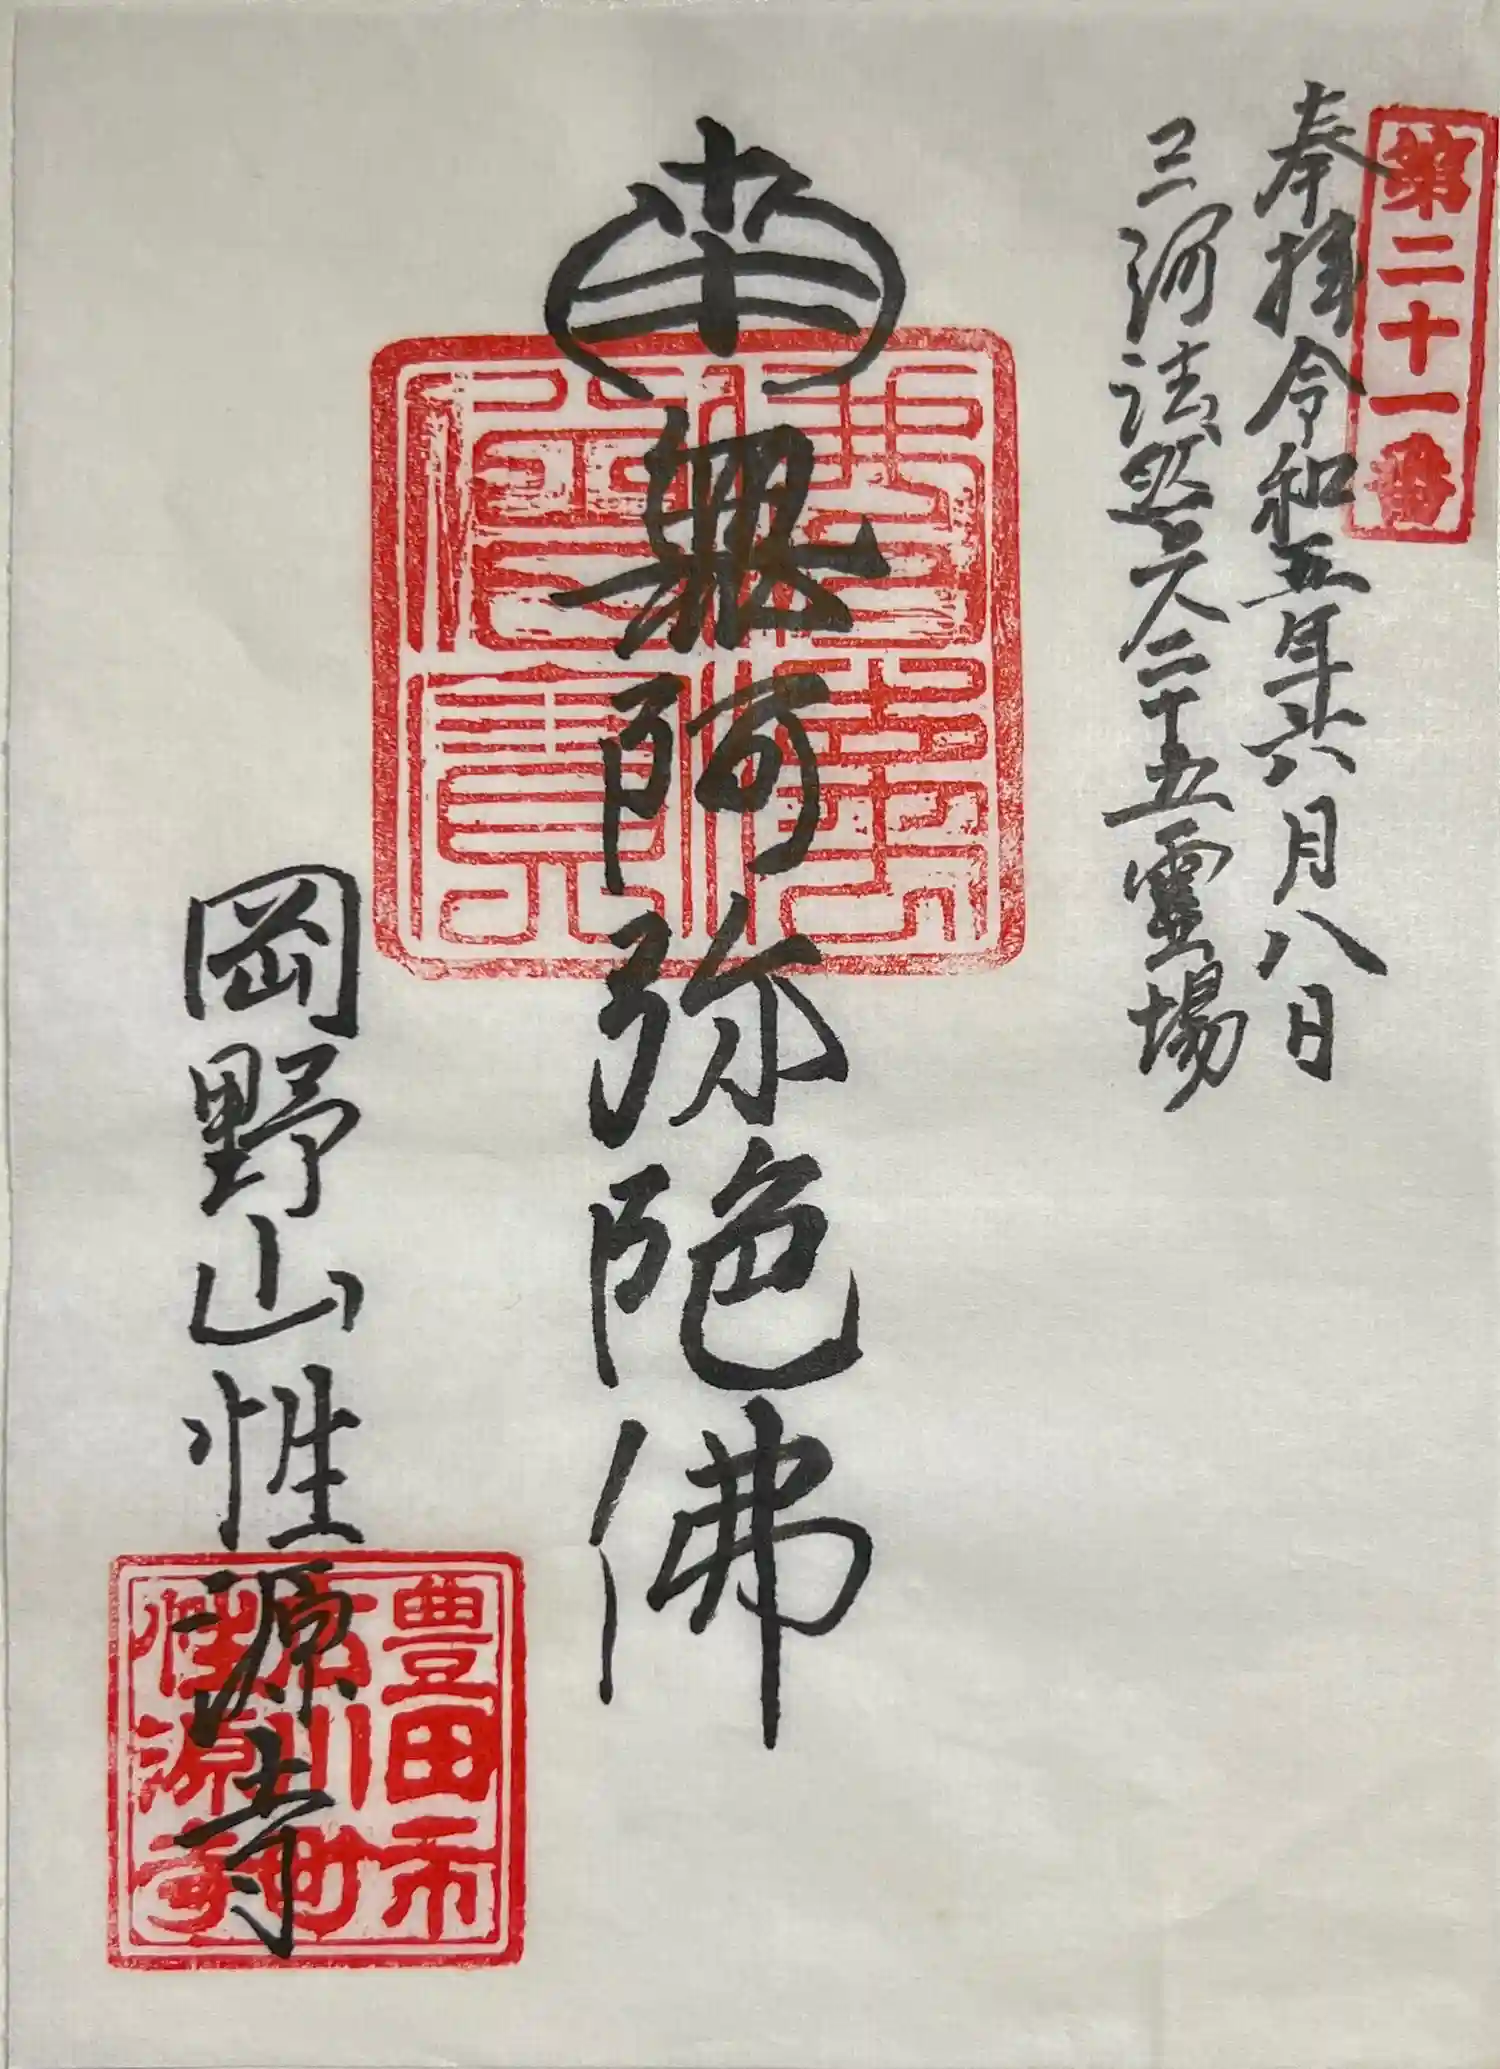 第二十一番
奉拝令和五年六月八日
三河法然上人二十五霊場
南無阿弥陀佛
岡野山性源寺
豊田市
古川町
性源寺